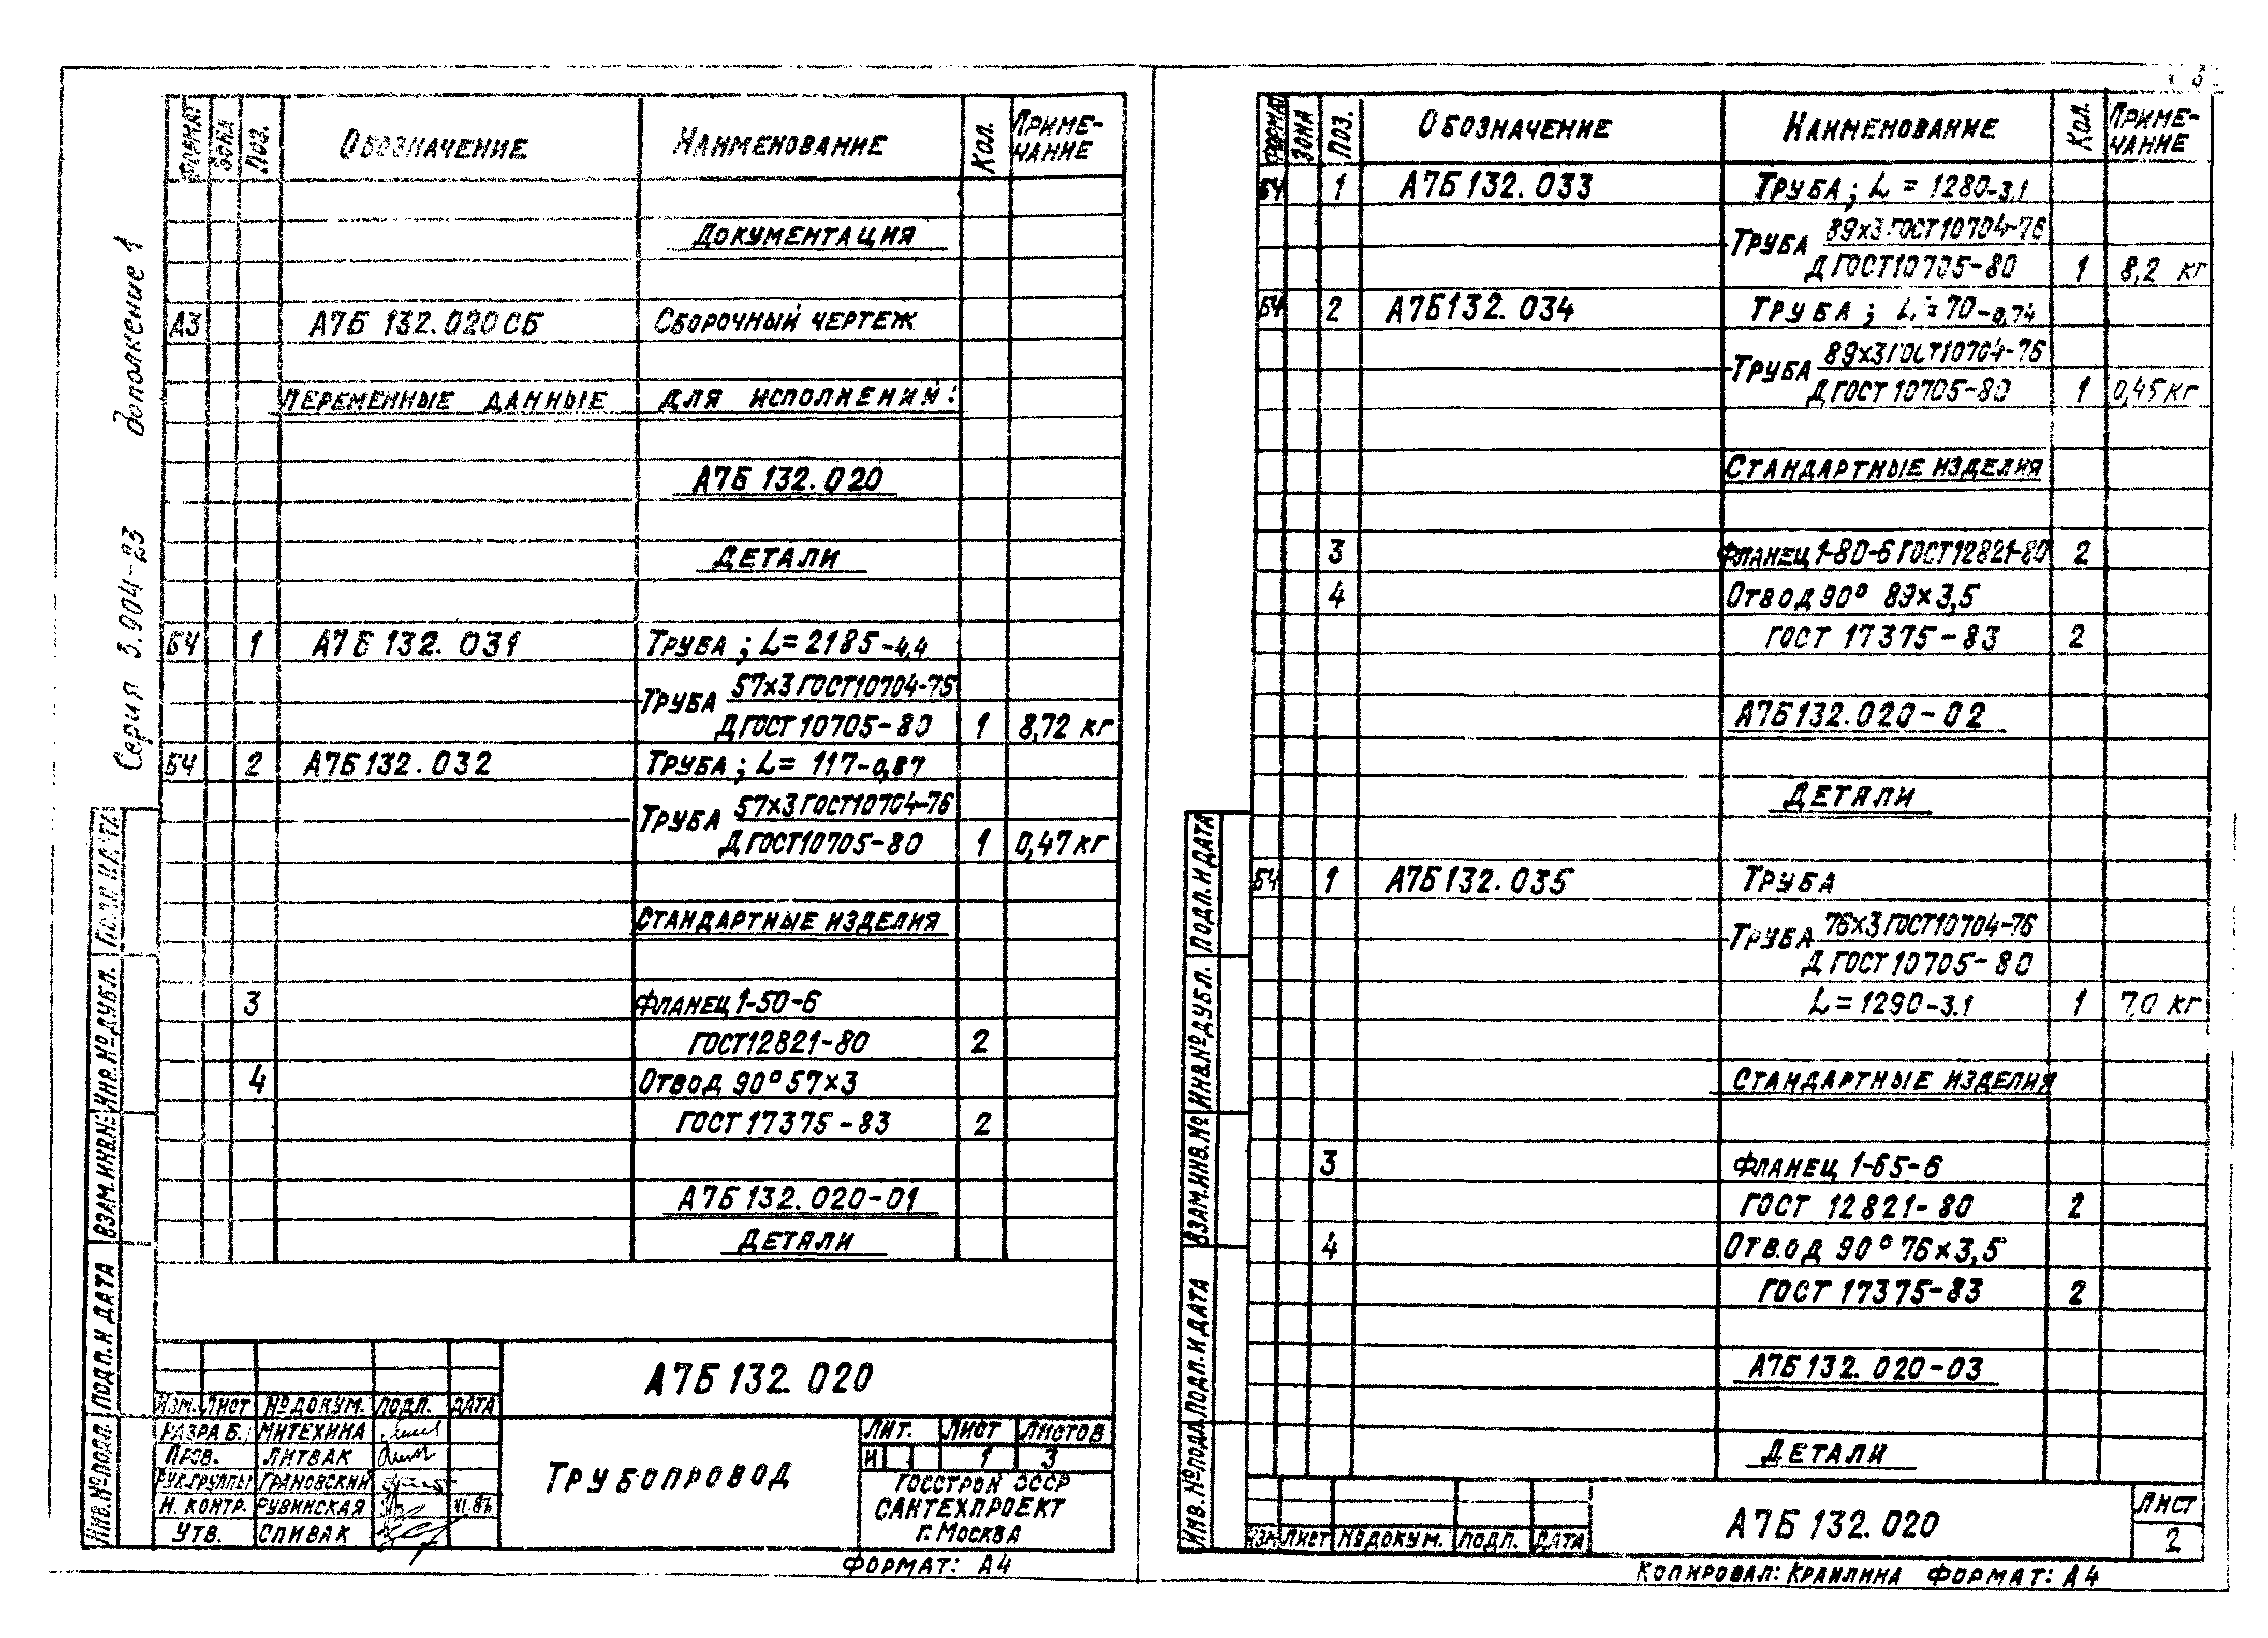 Серия 3.904-23 дополнение 1
ФОРМАТ ЗОНА ПОЗ. ОБОЗНАЧЕНИЕ НАИМЕНОВАНИЕ КОЛ. ПРИМЕ-
ЧАНИЕ
ДОКУМЕНТАЦИЯ
А3 А7Б 132.020СБ СБОРОЧНЫЙ ЧЕРТЕЖ
ПЕРЕМЕННЫЕ ДАННЫЕ ДЛЯ ИСПОЛНЕНИЙ:
А7Б 132.020
ДЕТАЛИ
БЧ 1 А7Б 132.031 ТРУБА; L=2185-4,4
ТРУБА 57×3 ГОСТ10704-76
Д ГОСТ 10705-80 1 8,72 кг
БЧ 2 А7Б132.032 ТРУБА; L= 117-0,87
ТРУБА 57×3 ГОСТ10704-76
Д ГОСТ10705-80 1 0,47 кг
СТАНДАРТНЫЕ ИЗДЕЛИЯ
3 ФЛАНЕЦ 1-50-6
ГОСТ12821-80 2
4 ОТВОД 90° 57×3
ГОСТ 17375-83 2
А7Б132.020-01
ДЕТАЛИ
ПОДП. И ДАТА
ИНВ.№ДУБЛ.
ВЗАМ.ИНВ.№
ПОДП. И ДАТА
ИНВ.№ПОДЛ.
А7Б 132.020
ИЗМ. ЛИСТ №ДОКУМ. ПОДП. ДАТА
РАЗРАБ. МИТЕХИНА
ПРОВ. ЛИТВАК
РУК.ГРУППЫ ГРАНОВСКИЙ
Н. КОНТР. РУВИНСКАЯ
УТВ. СПИВАК
ТРУБОПРОВОД
ЛИТ. ЛИСТ ЛИСТОВ
И 1 3
ГОССТРОЙ СССР
САНТЕХПРОЕКТ
г. МОСКВА
ФОРМАТ: А4
3
ФОРМАТ ЗОНА ПОЗ. ОБОЗНАЧЕНИЕ НАИМЕНОВАНИЕ КОЛ. ПРИМЕ-
ЧАНИЕ
БЧ 1 А7Б132.033 ТРУБА; L = 1280-3,1
ТРУБА 89×3 ГОСТ10704-76
Д ГОСТ10705-80 1 8,2 кг
БЧ 2 А7Б132.034 ТРУБА; L=70-0,74
ТРУБА 89×3 ГОСТ10704-76
Д ГОСТ 10705-80 1 0,45 кг
СТАНДАРТНЫЕ ИЗДЕЛИЯ
3 ФЛАНЕЦ 1-80-6 ГОСТ12821-80 2
4 ОТВОД 90° 89×3,5
ГОСТ 17375-83 2
А7Б132.020-02
ДЕТАЛИ
БЧ 1 А7Б132.035 ТРУБА
ТРУБА 76×3 ГОСТ10704-76
Д ГОСТ 10705-80
L=1290-3.1 1 7,0 кг
СТАНДАРТНЫЕ ИЗДЕЛИЯ
3 ФЛАНЕЦ 1-65-6
ГОСТ 12821-80 2
4 ОТВОД 90° 76×3,5
ГОСТ 17375-83 2
А7Б132.020-03
ДЕТАЛИ
ПОДП. И ДАТА
ИНВ.№ДУБЛ.
ВЗАМ.ИНВ.№
ПОДП. И ДАТА
ИНВ.№ПОДЛ.
ИЗМ ЛИСТ №ДОКУМ. ПОДП. ДАТА
А7Б 132.020
ЛИСТ
2
КОПИРОВАЛ: КРАИЛИНА ФОРМАТ: А4